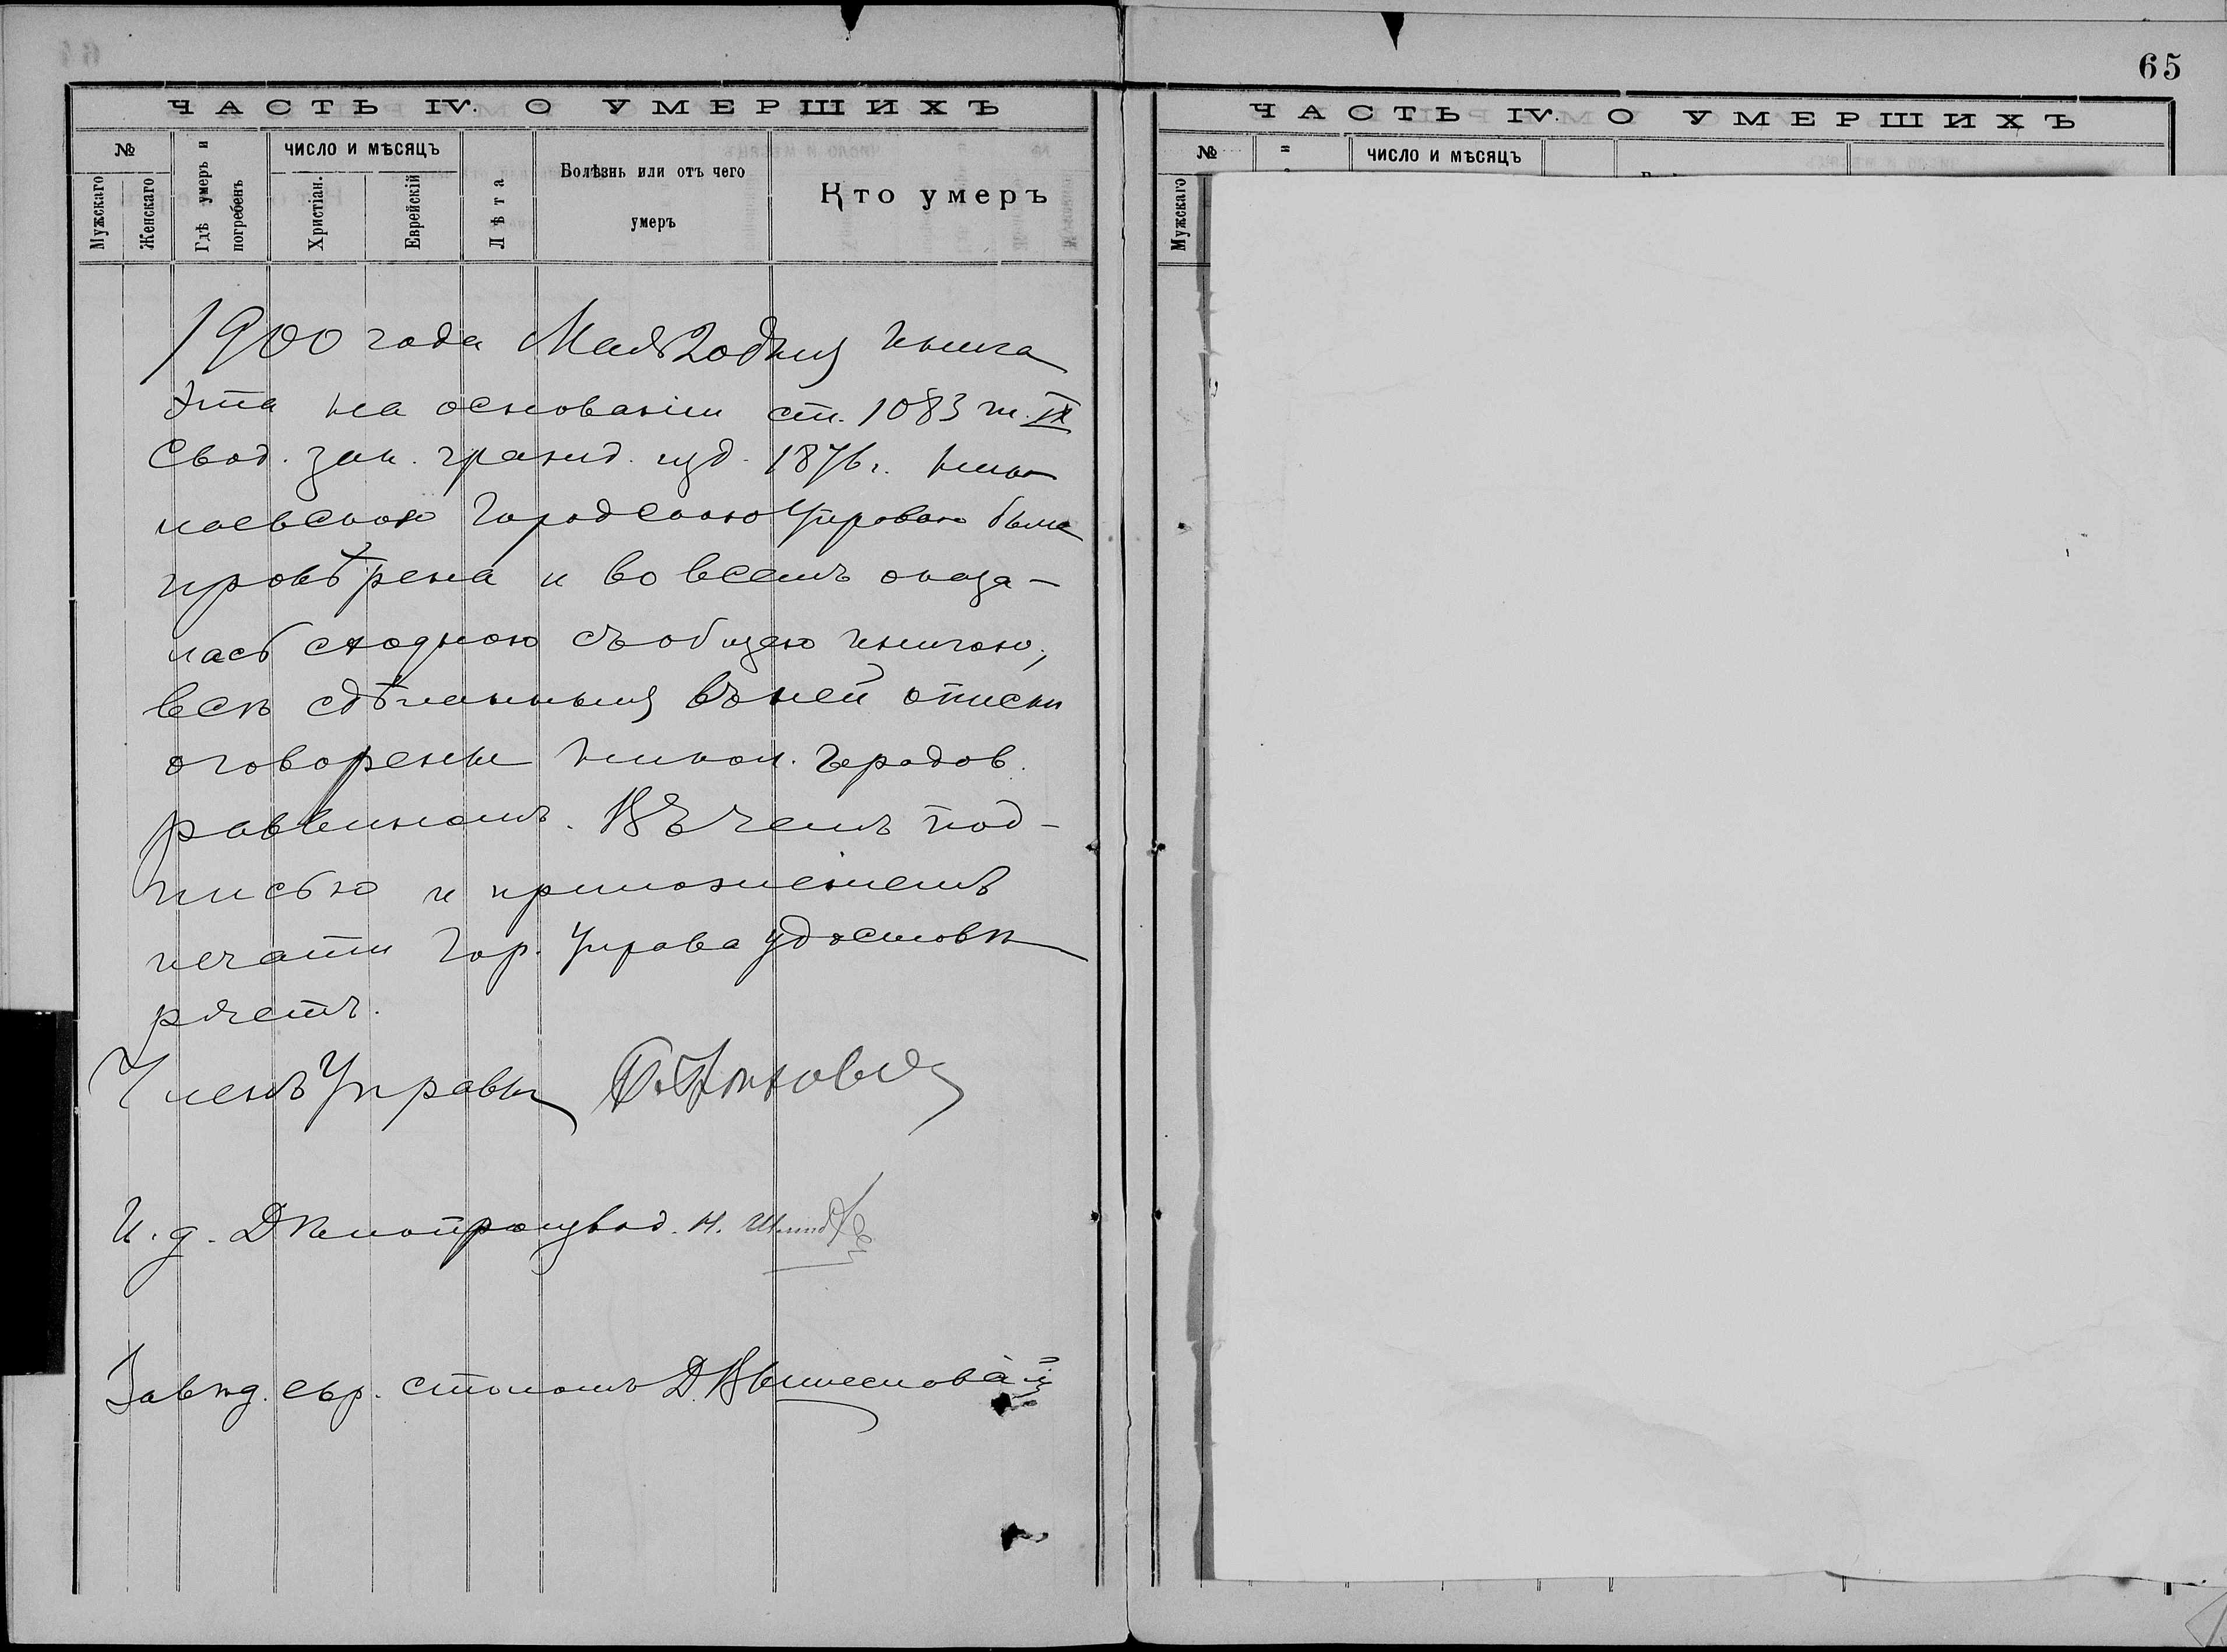 65
ЧАСТЬ IV. О УМЕРШИХЪ
№
Мужскаго
Женскаго
Гдѣ умеръ и погребенъ
ЧИСЛО И МѢСЯЦЪ
Христіан.
Еврейскій
Лѣта
Болѣзнь или отъ чего умеръ
Кто умеръ
1900 года Мая 20 дня книга
эта на основаніи ст. 1083 т. IX
Свод. зак. гражд. изд. 1876 г. Нико
лаевскою Городскою Управою была
провѣрена и во всемъ оказа-
лась сходною съ общею книгою;
всѣ сдѣланныя въ ней описки
оговорены Никол. Городов.
раввиномъ. Въ чемъ под-
писью и приложеніемъ
печати Гор. Управа удостовѣ
ряетъ.
Членъ Управы
И. д. Дѣлопроизвод. Н.
Завѣд. евр. столомъ Д.
ЧАСТЬ IV. О УМЕРШИХЪ
№
Мужскаго
ЧИСЛО И МѢСЯЦЪ